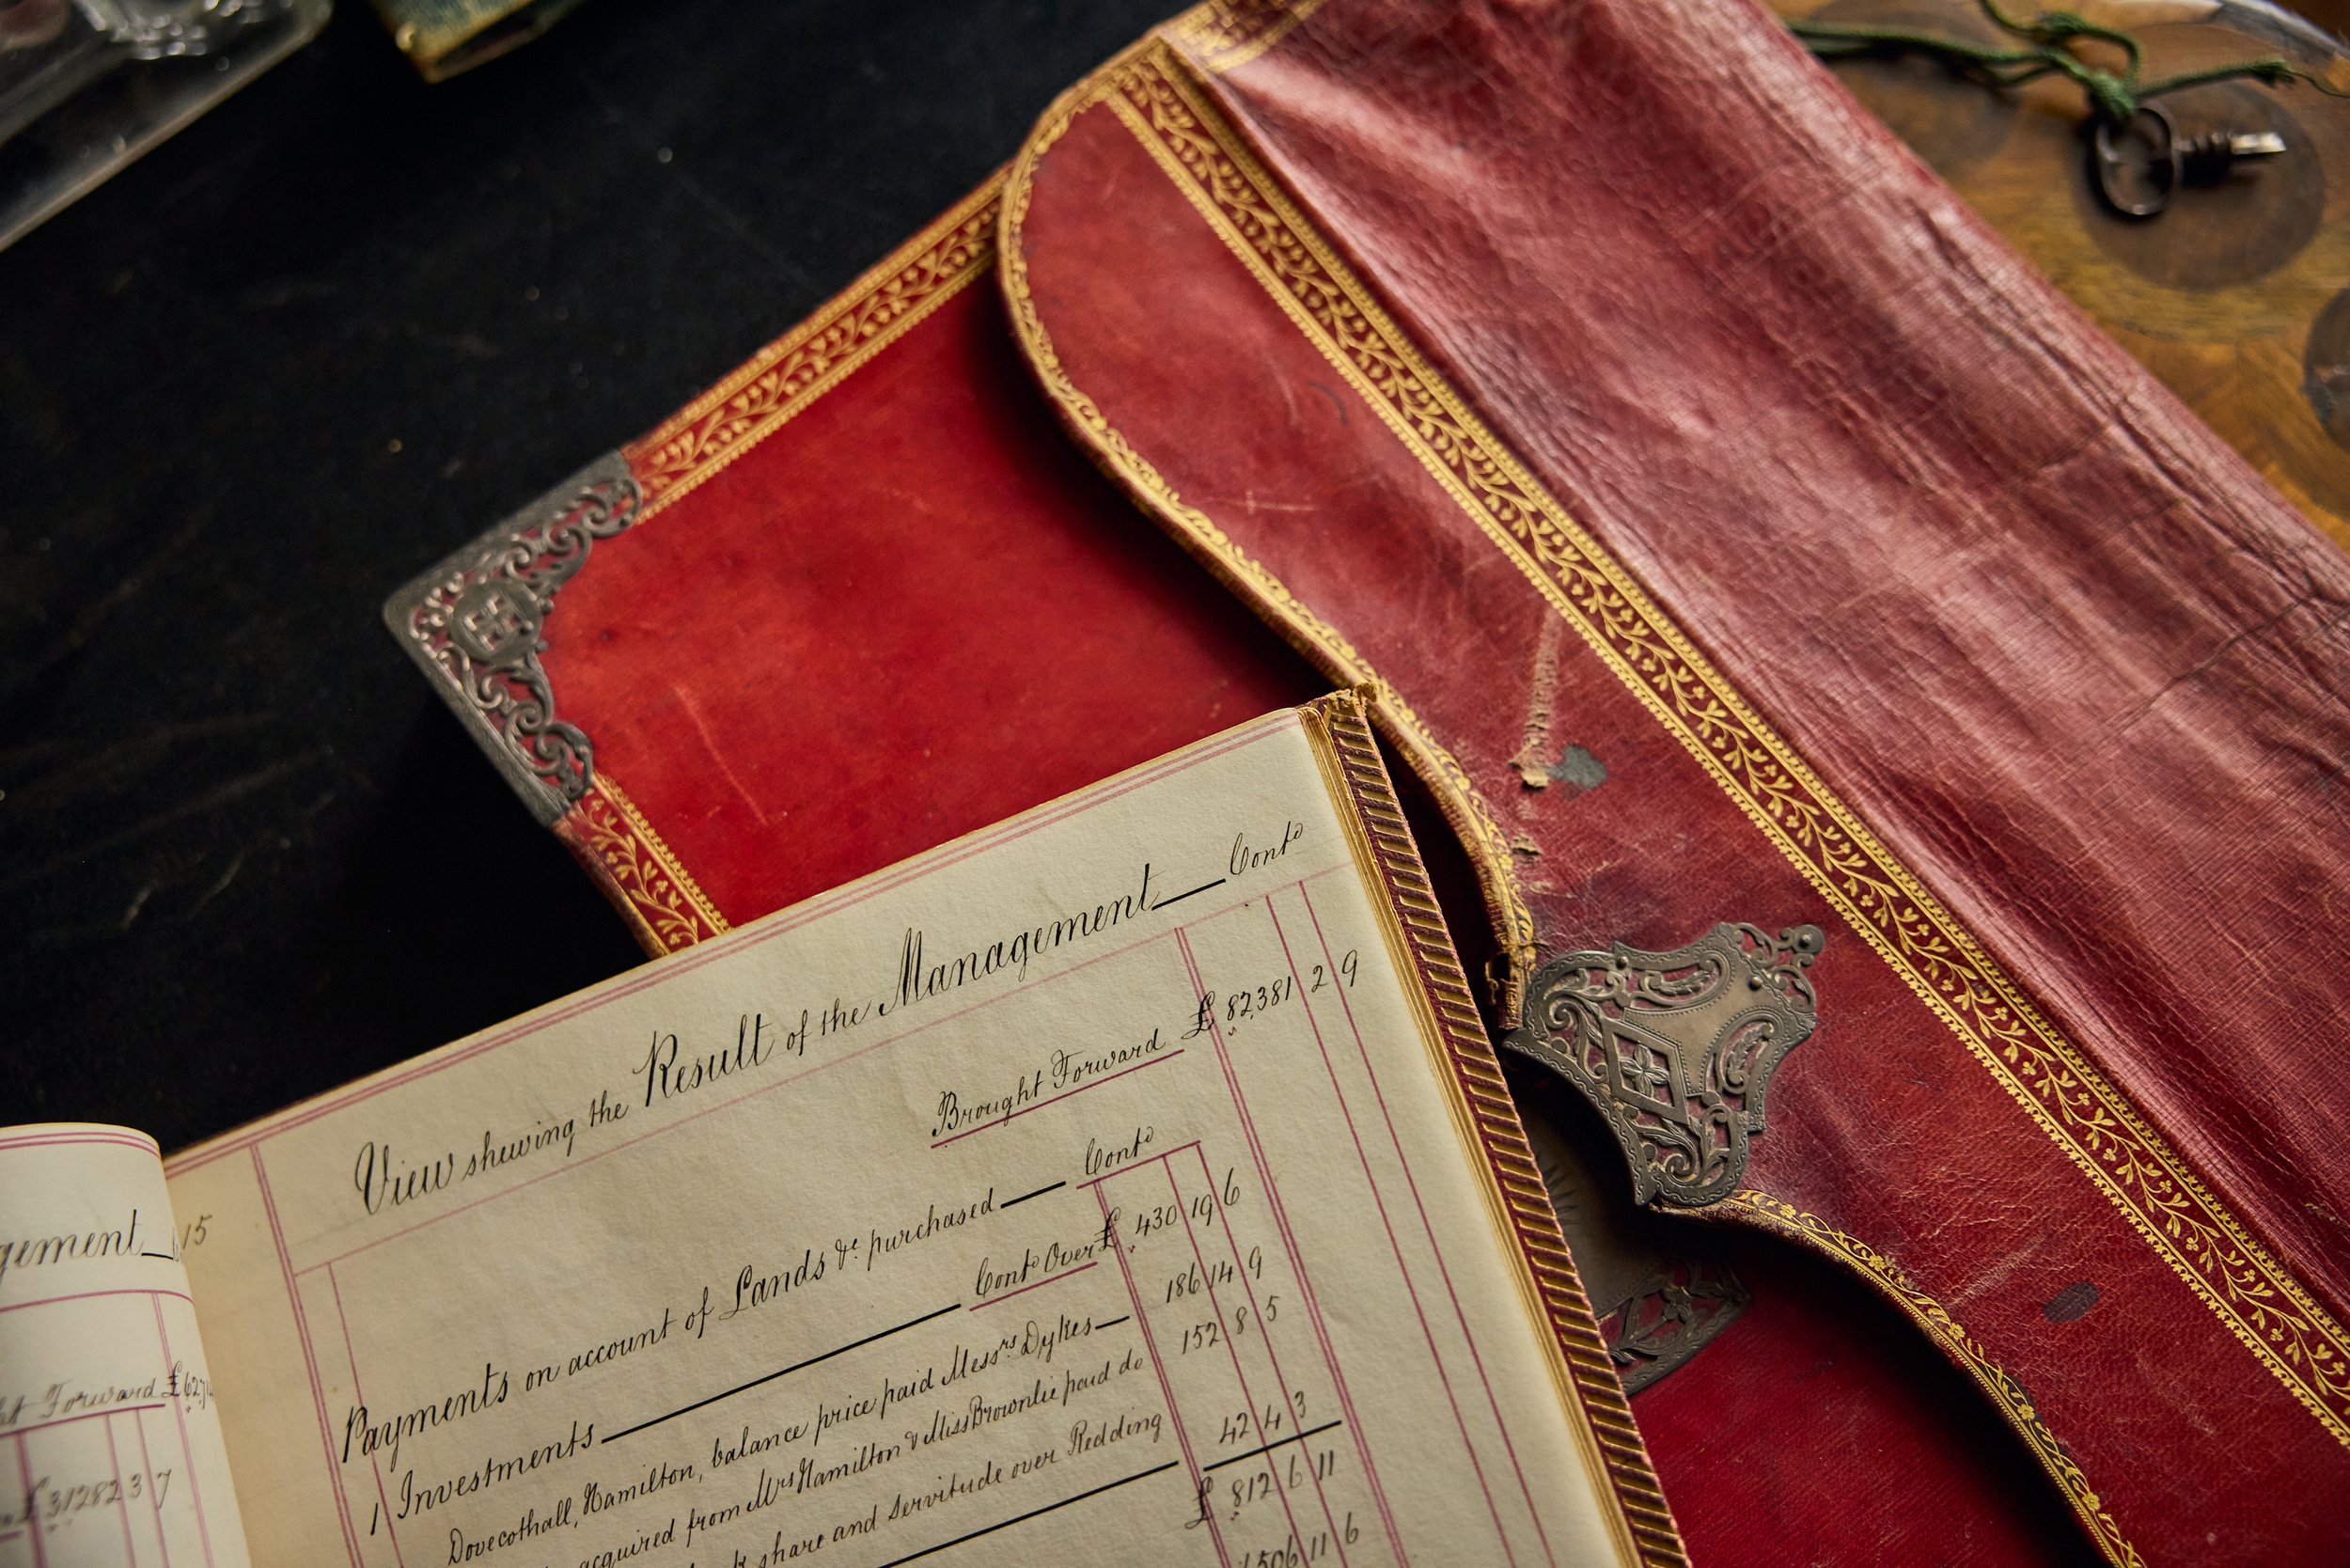 gement
15
Forward £
£31282 3 7
View shewing the Result of the Management — Contd
Brought Forward £ 82,381 2 9
Payments on account of Lands &c purchased — Contd
1 Investments — Contd Over £ 430 19 6
Dovecothall, Hamilton, balance price paid Messrs Dykes — 186 14 9
acquired from Mrs Hamilton & Miss Brownlie paid do 152 8 5
share and servitude over Redding 42 4 3
£ 812 6 11
1506 11 6